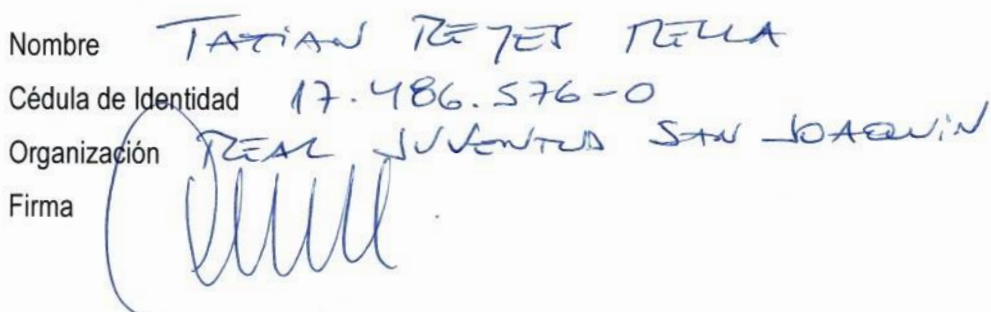 Nombre TATIAN REYES MELLA
Cédula de Identidad 17.486.576-0
Organización REAL JUVENTUD SAN JOAQUÍN
Firma